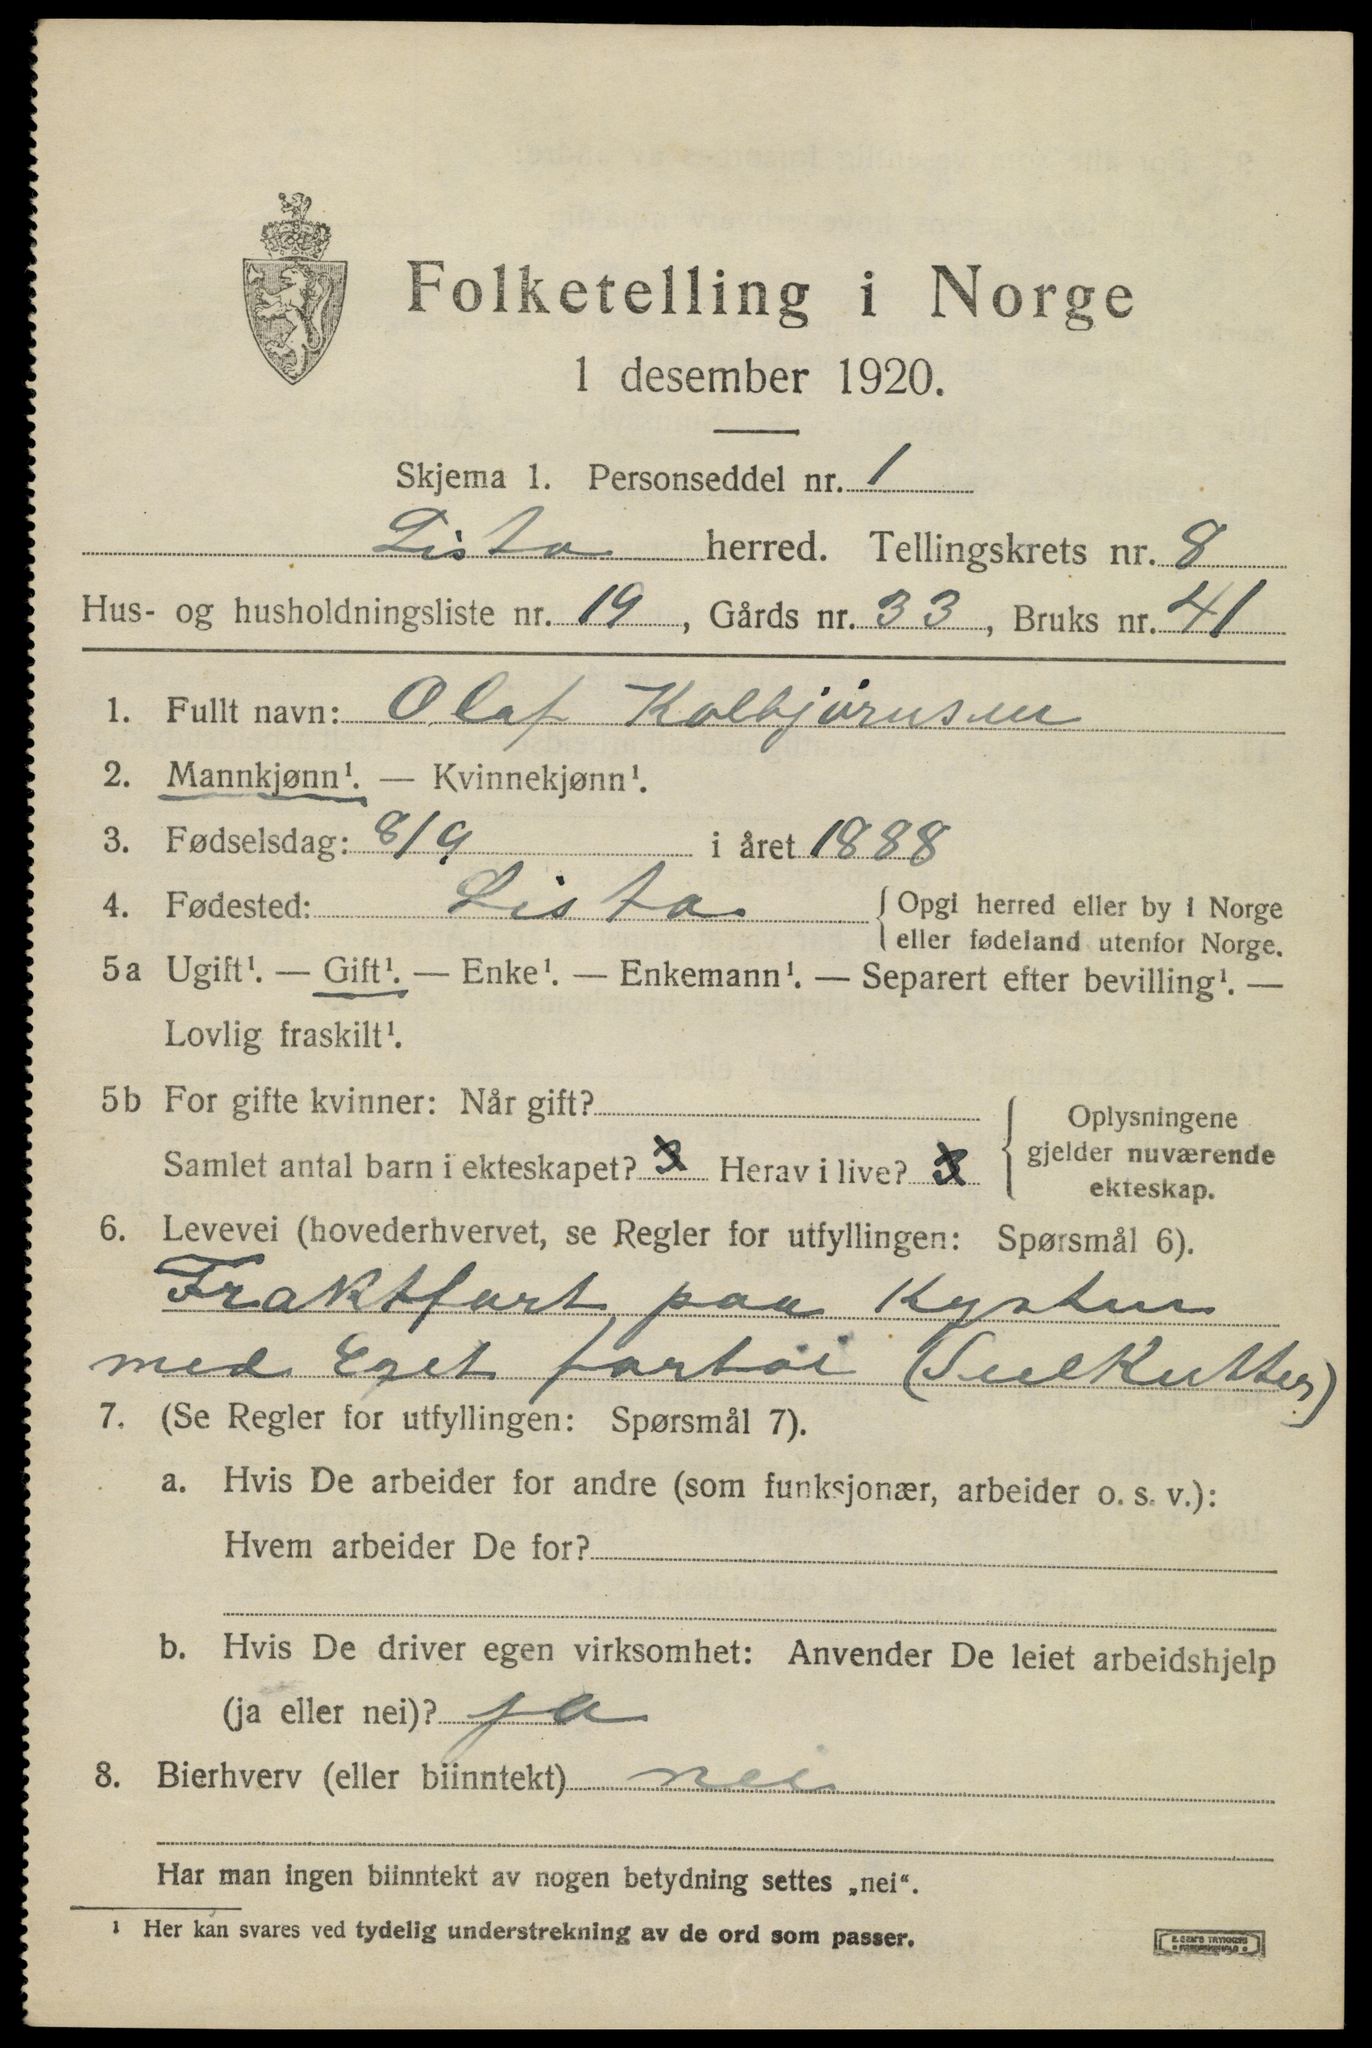 Folketelling i Norge
1 desember 1920.
Skjema 1. Personseddel nr. 1
Lista herred. Tellingskrets nr. 8
Hus- og husholdningsliste nr. 19, Gårds nr. 33, Bruks nr. 41
1. Fullt navn: Olaf Kolbjørnsen
2. Mannkjønn¹. — Kvinnekjønn¹.
3. Fødselsdag: 8/9 i året 1888
4. Fødested: Lista { Opgi herred eller by i Norge
eller fødeland utenfor Norge.
5a Ugift¹. — Gift¹. — Enke¹. — Enkemann¹. — Separert efter bevilling¹. —
Lovlig fraskilt¹.
5b For gifte kvinner: Når gift?
Samlet antal barn i ekteskapet? 3 Herav i live? 3
Oplysningene
gjelder nuværende
ekteskap.
6. Levevei (hovederhvervet, se Regler for utfyllingen: Spørsmål 6).
Fraktfart paa Kysten
med Eget fartøi (Seilkutter)
7. (Se Regler for utfyllingen: Spørsmål 7).
a. Hvis De arbeider for andre (som funksjonær, arbeider o. s. v.):
Hvem arbeider De for?
b. Hvis De driver egen virksomhet: Anvender De leiet arbeidshjelp
(ja eller nei)? ja
8. Bierhverv (eller biinntekt) nei
Har man ingen biinntekt av nogen betydning settes „nei“.
¹ Her kan svares ved tydelig understrekning av de ord som passer.